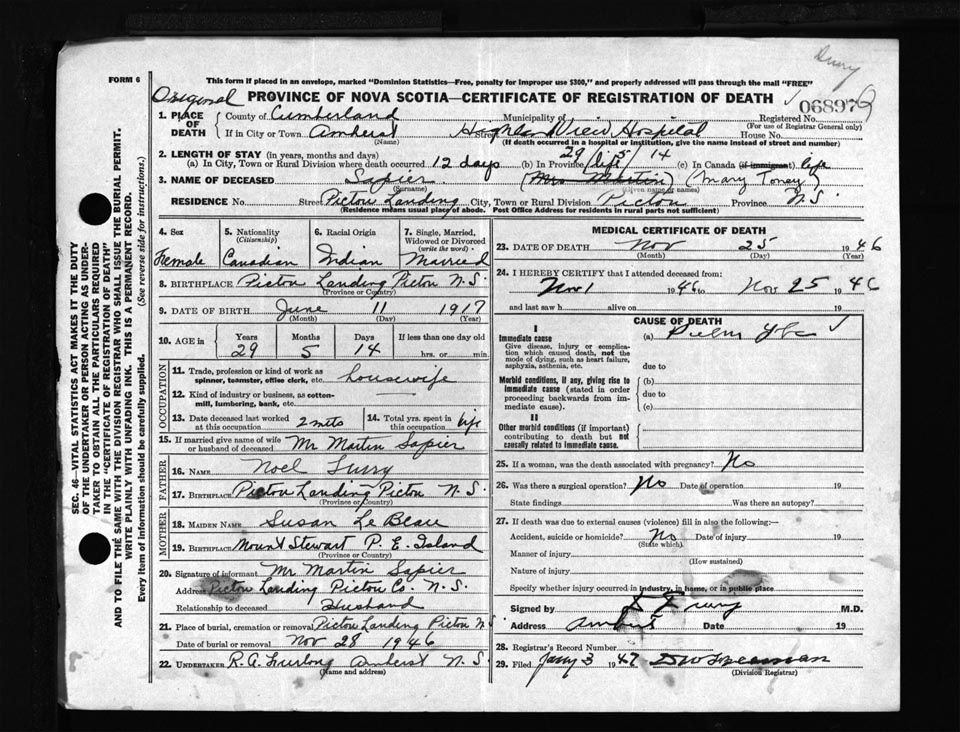 Drury
FORM 6
This form if placed in an envelope, marked "Dominion Statistics—Free, penalty for improper use $300," and properly addressed will pass through the mail "FREE"
Original PROVINCE OF NOVA SCOTIA—CERTIFICATE OF REGISTRATION OF DEATH
1. PLACE OF DEATH County of Cumberland Municipality of Registered No. 06897
(For use of Registrar General only)
If in City or Town Amherst Street Highland View Hospital House No.
(Name) (If death occurred in a hospital or institution, give the name instead of street and number)
2. LENGTH OF STAY (in years, months and days) 29 / 5 / 14
(a) In City, Town or Rural Division where death occurred 12 days (b) In Province life (c) In Canada (if immigrant) life
3. NAME OF DECEASED Sapier (Mrs Martin) (Mary Toney)
(Surname) (Given name or names)
RESIDENCE No. Street Pictou Landing City, Town or Rural Division Pictou Province N.S
(Residence means usual place of abode. Post Office Address for residents in rural parts not sufficient)
4. Sex 5. Nationality (Citizenship) 6. Racial Origin 7. Single, Married, Widowed or Divorced (write the word)
Female Canadian Indian Married
8. BIRTHPLACE Pictou Landing Pictou N.S.
(Province or Country)
9. DATE OF BIRTH June 11 1917
(Month) (Day) (Year)
10. AGE in Years Months Days If less than one day old
29 5 14 hrs. or min.
OCCUPATION
11. Trade, profession or kind of work as spinner, teamster, office clerk, etc. housewife
12. Kind of industry or business, as cotton-mill, lumbering, bank, etc. —
13. Date deceased last worked at this occupation 2 mots 14. Total yrs. spent in this occupation life
15. If married give name of wife or husband of deceased Mr Martin Sapier
FATHER
16. NAME Noel
17. BIRTHPLACE Pictou Landing Pictou N.S.
(Province or Country)
MOTHER
18. MAIDEN NAME Susan Le Blau
19. BIRTHPLACE Mount Stewart P. E. Island
(Province or Country)
20. Signature of informant Mr Martin Sapier
Address Pictou Landing Pictou Co. N.S.
Relationship to deceased Husband
21. Place of burial, cremation or removal Pictou Landing Pictou N.S
Date of burial or removal Nov 28 1946
22. UNDERTAKER R. A. Furlong Amherst N.S.
(Name and address)
MEDICAL CERTIFICATE OF DEATH
23. DATE OF DEATH Nov 25 1946
(Month) (Day) (Year)
24. I HEREBY CERTIFY that I attended deceased from:
Nov 1 1946 to Nov 25 1946
and last saw h alive on 19
CAUSE OF DEATH
I
Immediate cause (a) Pulm Tbc
Give disease, injury or complication which caused death, not the mode of dying, such as heart failure, asphyxia, asthenia, etc.
due to
Morbid conditions, if any, giving rise to immediate cause (stated in order proceeding backwards from immediate cause).
(b)
due to
(c)
II
Other morbid conditions (if important) contributing to death but not causally related to immediate cause.
25. If a woman, was the death associated with pregnancy? No
26. Was there a surgical operation? No Date of operation 19
State findings Was there an autopsy?
27. If death was due to external causes (violence) fill in also the following:—
Accident, suicide or homicide? No Date of injury 19
(State which)
Manner of injury
(How sustained)
Nature of injury
Specify whether injury occurred in industry, in home, or in public place
Signed by Drury M.D.
Address Amherst Date 19
28. Registrar's Record Number
29. Filed Jany 3 1947
(Division Registrar)
SEC. 46—VITAL STATISTICS ACT MAKES IT THE DUTY
OF THE UNDERTAKER OR PERSON ACTING AS UNDER-
TAKER TO OBTAIN ALL THE PARTICULARS REQUIRED
IN THE "CERTIFICATE OF REGISTRATION OF DEATH"
AND TO FILE THE SAME WITH THE DIVISION REGISTRAR WHO SHALL ISSUE THE BURIAL PERMIT.
WRITE PLAINLY WITH UNFADING INK. THIS IS A PERMANENT RECORD.
Every item of information should be carefully supplied. (See reverse side for instructions.)